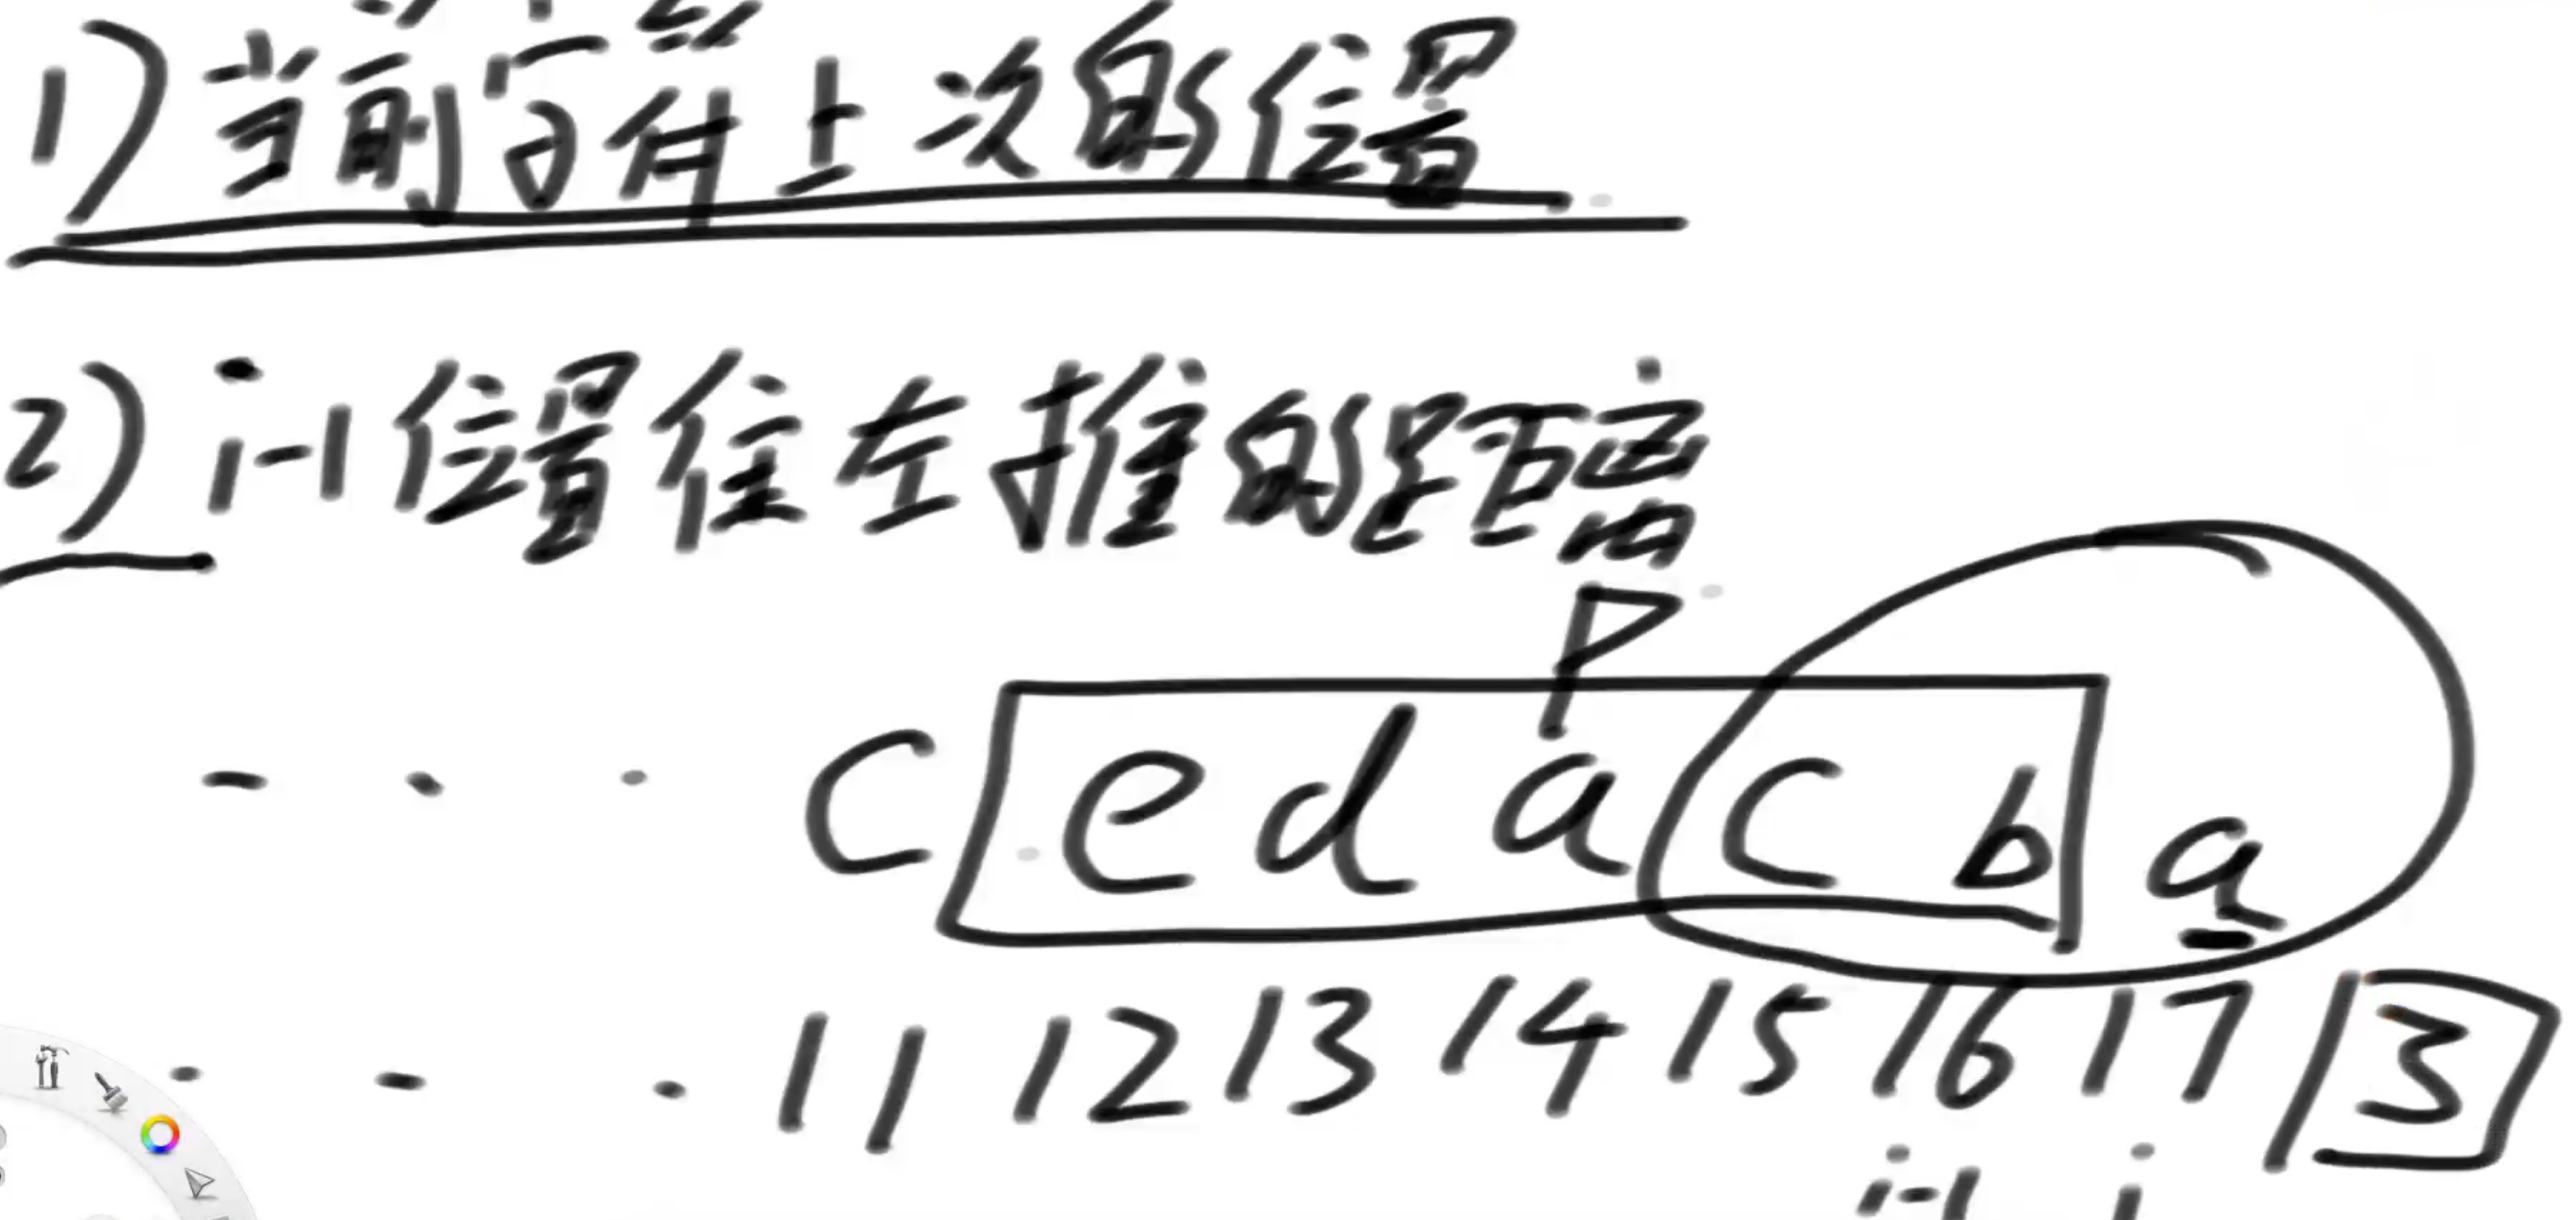 1) 当前字符上次的位置
2) i-1位置往左推的距离
P
. . . c e d a c b a
. . . 11 12 13 14 15 16 17 3
i-1 i